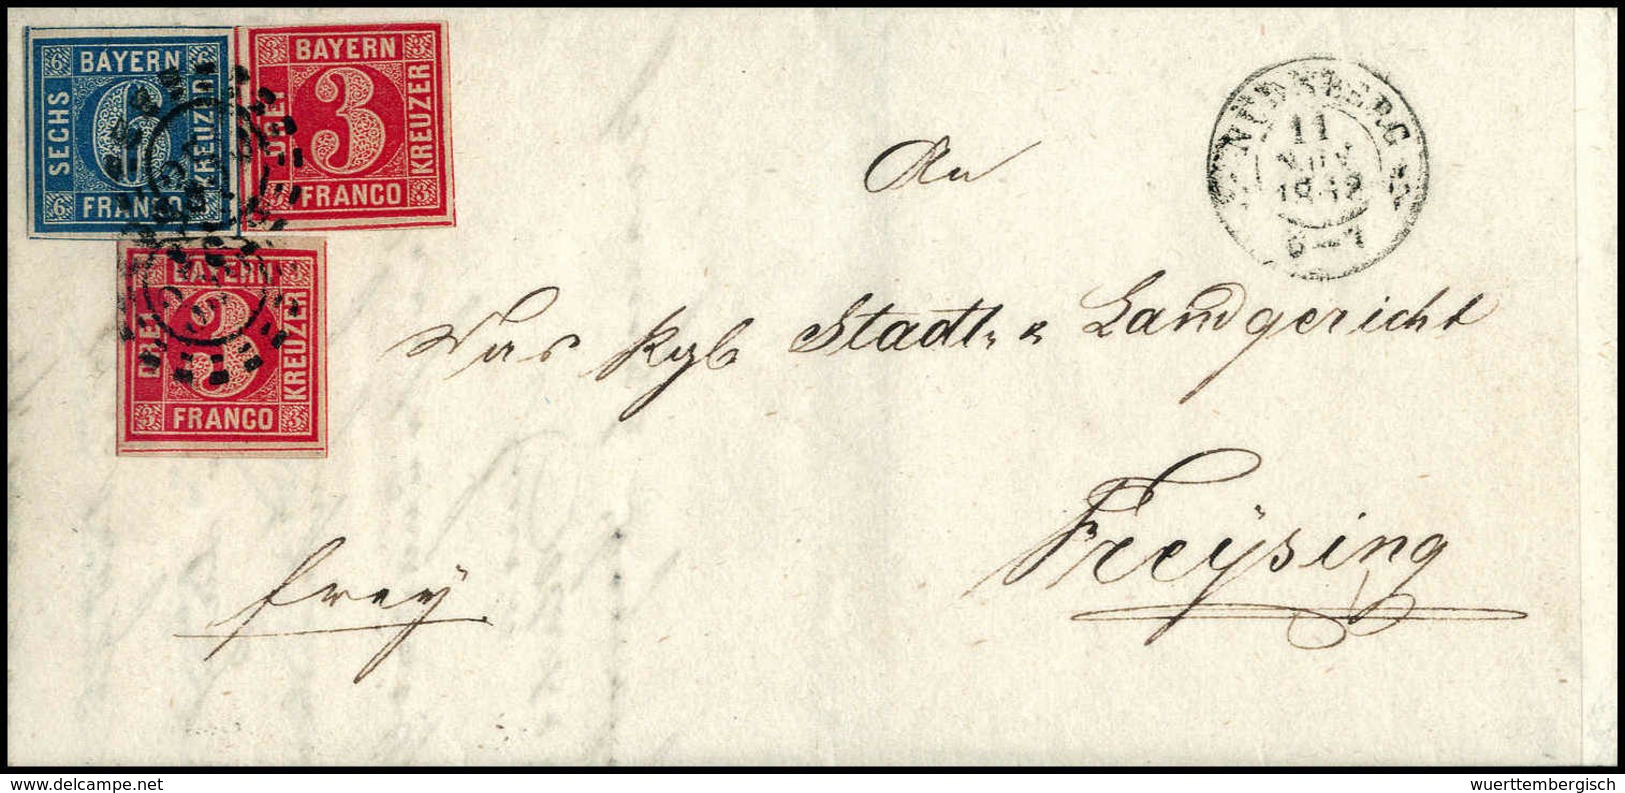 BAYERN
SECHS
KREUZER
FRANCO
6 6 6 6
BAYERN
DREI
KREUZER
FRANCO
3 3 3 3
BAYERN
DREI
KREUZER
FRANCO
3 3 3
NÜRNBERG
11
NOV
1862
6-7
An
Das Kgl Stadt- & Landgericht
Freÿsing
freÿ
Delcampe.net
wuerttembergisch